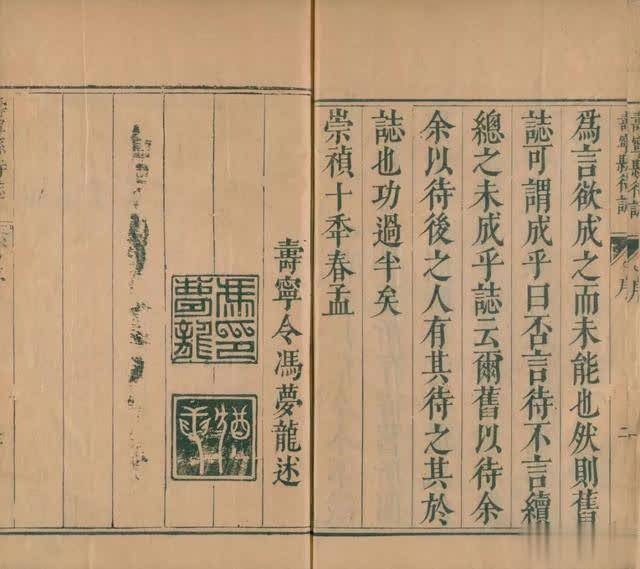 壽寧縣待誌
序
二
爲言欲成之而未能也然則舊
誌可謂成乎曰否言待不言續
總之未成乎誌云爾舊以待余
余以待後之人有其待之其於
誌也功過半矣
崇禎十年春孟
壽寧令馮夢龍述
馮夢龍印
猶龍